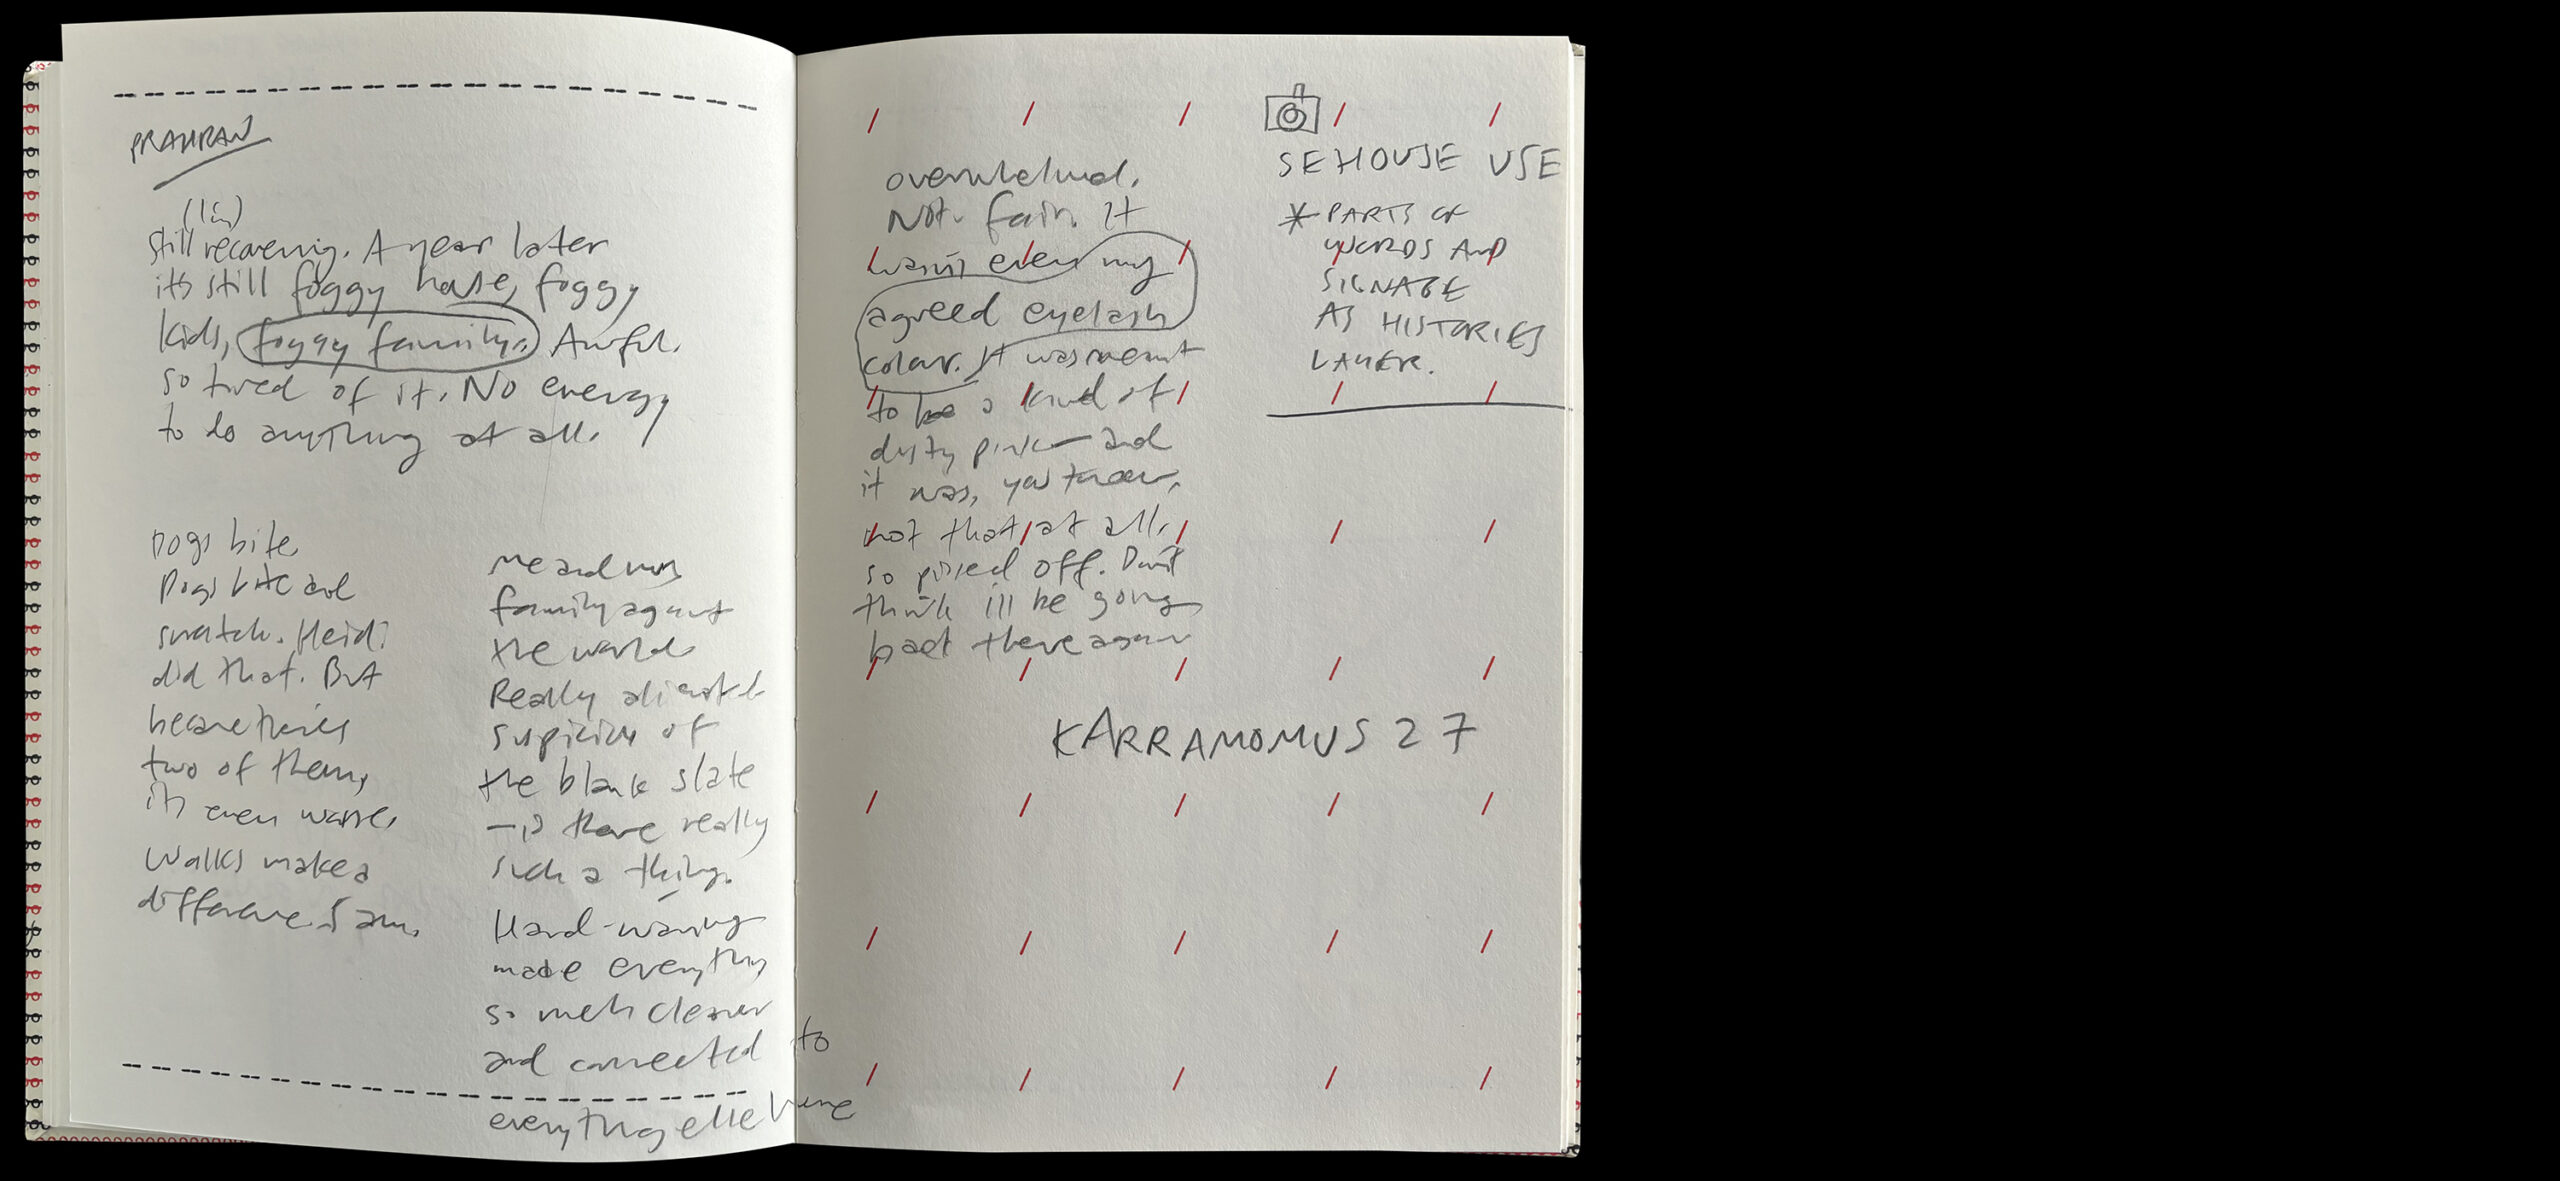 PRAHRAN
(lin)
Still recovering. A year later
it's still foggy house, foggy
kids, foggy family. Awful.
so tired of it. No energy
to do anything at all.
Dogs bite.
Dogs bite and
scratch. Heidi
did that. But
because theres
two of them,
it's even worse.
Walks make a
difference. 5 am.
me and my
family against
the world
Really
suspicious of
the blank slate
– is there really
such a thing.
Hand-waving
made everything
so much clearer
and connected to
everything else here
overwhelmed.
Not fair. It
wasn't even my
agreed eyelash
colour. It was meant
to be a kind of
dusty pink – and
it was, you know,
not that at all.
so pissed off. Don't
think i'll be going
back there again
SEHOUSE USE
* PARTS OF
WORDS AND
SIGNAGE
AS HISTORIES
LAYER.
KARRAMOMUS 27